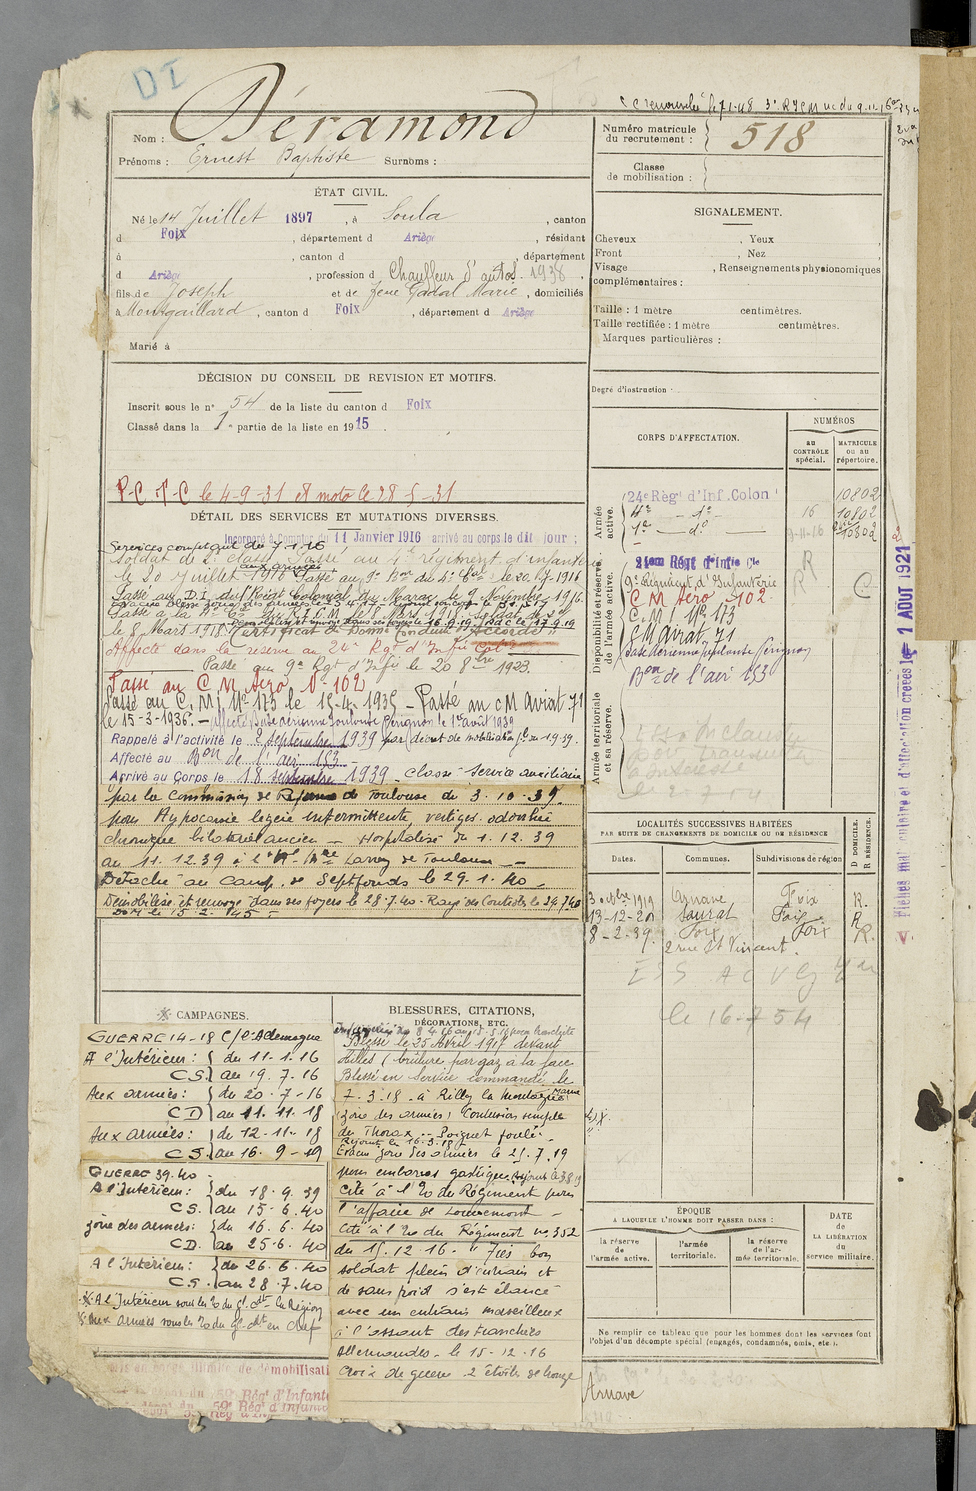 DI
Nom : Déramond
Prénoms : Ernest Baptiste Surnoms :
Numéro matricule du recrutement : 518
Classe de mobilisation :
ÉTAT CIVIL.
Né le 14 Juillet 1897, à Soula, canton
d Foix, département d Ariège, résidant
à , canton d , département
d Ariège, profession d Chauffeur d'autos. 1938,
fils de Joseph et de feue Gadal Marie, domiciliés
à Montgaillard, canton d Foix, département d Ariège
Marié à
SIGNALEMENT.
Cheveux , Yeux
Front , Nez
Visage , Renseignements physionomiques
complémentaires :
Taille : 1 mètre centimètres.
Taille rectifiée : 1 mètre centimètres.
Marques particulières :
Degré d'instruction :
DÉCISION DU CONSEIL DE REVISION ET MOTIFS.
Inscrit sous le n° 54 de la liste du canton d Foix
Classé dans la 1e partie de la liste en 1915.
P-C T-C le 4-9-31 et moto le 28-5-31
DÉTAIL DES SERVICES ET MUTATIONS DIVERSES.
Incorporé à compter du 11 Janvier 1916 arrivé au corps le dit jour ;
Services comptant du 7-1-16
Soldat de 2e classe Passé au 4e régiment d'infanterie
le 20 Juillet 1916 Passé au 1er Bon du 4e Col le 20-7-1916
aux armées
Passé au D.I. du Régt Colonial du Maroc le 9 Novembre 1916
le 8 Mars 1918
Certificat de bonne conduite "Accordé"
Affecté dans la réserve au 24e Rgt d'Infie Cole
Passé au 9e Rgt d'Infie le 20 8bre 1923.
Passé au C M Aéro N° 102
Passé au C. M N° 173 le 15-4-1935 - Passé au CM Aviat 71
le 15-3-1936. - Affecté Base aérienne Toulouse Pérignon le 1er août 1939
Rappelé à l'activité le 2 septembre 1939 par décret de mobilisation gle du 1.9.39.
Affecté au Bon de l'air 153
Arrivé au Corps le 18 septembre 1939 - Classé Service auxiliaire
par la Commission de Réforme de Toulouse du 3-10-39.
pour Hypoacousie légère intermittente, vertiges. otorrhée
chronique bilatérale ancien - Hospitalisé du 1.12.39
au 11.12.39 à l'Hal Mre Larrey de Toulouse -
Détaché au Camp de Septfonds le 29.1.40 -
Démobilisé et renvoyé dans ses foyers le 28.7.40 - Rayé des Contrôles le 29.7.40
CORPS D'AFFECTATION.
NUMÉROS
au CONTRÔLE spécial.
MATRICULE ou au répertoire.
Armée active.
24e Régt d'Inf. Colon 10802
4e - do - 16 10802
1er - do - 9-11-16 10802
Disponibilité et réserve de l'armée active.
24eme Régt d'Infie Cle R
9e Régiment d'Infanterie R C
C M Aéro 102
C. M. N° 173
C M Aviat. 71
Base Aérienne Toulouse Pérignon
Bon de l'air 153
Armée territoriale et sa réserve.
LOCALITÉS SUCCESSIVES HABITÉES
PAR SUITE DE CHANGEMENTS DE DOMICILE OU DE RÉSIDENCE
Dates. Communes. Subdivisions de région
D DOMICILE. R RÉSIDENCE.
3 octbre 1919 Arnave Foix R.
13-12-20 Saurat Foix R
8-2-39. Foix Foix R.
2 rue St Vincent.
le 16-7 54
Fiches matriculaire et d'affectation créées le 1 AOUT 1921
CAMPAGNES.
GUERRE 14-18 C/ l'Allemagne
A l'Intérieur : du 11-1-16
CS. au 19.7.16
Aux armées : du 20-7-16
CD au 11.11.18
Aux armées : du 12-11-18
CS. au 16.9-19
GUERRE 39.40 -
A l'Intérieur : du 18.9.39
CS. au 15.6.40
zone des armées : du 16.6.40
CD. au 25.6.40
A l'Intérieur : du 26.6.40
CS. au 28.7.40
A l'Intérieur sous les o. du Gl. Cdt la Région
Aux armées sous les o. du Gl. Cdt en chef
BLESSURES, CITATIONS,
DÉCORATIONS, ETC.
Blessé le 25 Avril 1917 devant
Ailles (brûlure par gaz à la face
Blessé en Service commandé le
7-3-18 - à Rilly la Montagne
(zone des armées) Contusion simple
du Thorax - Poignet foulé -
Rejoint le 16-3-18
Evacué zone des armées le 21.7.19
pour embarras gastrique.
Cité à l'O. du Régiment pour
l'affaire de Louvemont -
Cité à l'O. du Régiment n° 352
du 15.12.16 - "Très bon
soldat plein d'entrain et
de sang froid s'est élancé
avec un entrain merveilleux
à l'assaut des tranchées
Allemandes - le 15-12-16
Croix de guerre 2 étoiles de bronze
ÉPOQUE
A LAQUELLE L'HOMME DOIT PASSER DANS :
la réserve de l'armée active.
l'armée territoriale.
la réserve de l'armée territoriale.
DATE de LA LIBÉRATION du service militaire.
Ne remplir ce tableau que pour les hommes dont les services font
l'objet d'un décompte spécial (engagés, condamnés, omis, etc.).
Arnave
59e Régt d'Infant